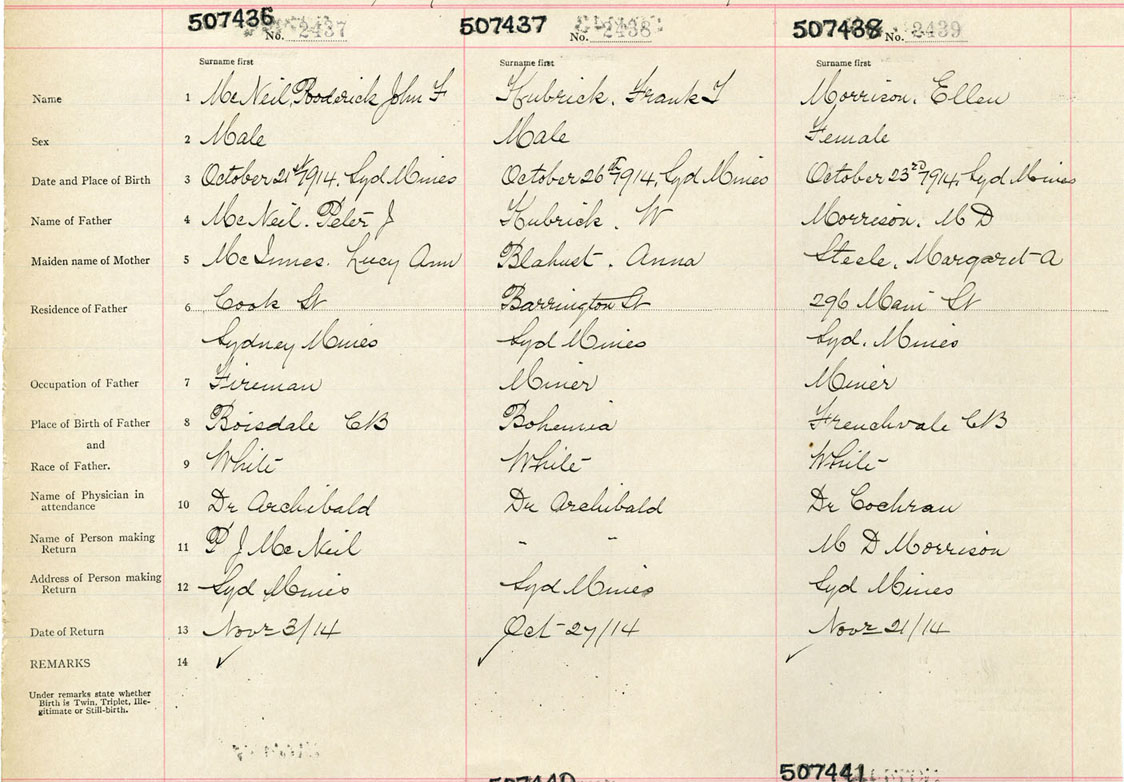 507436 507437 507438
No. 2437 No. 2438 No. 2439
Surname first Surname first Surname first
Name 1 McNeil, Roderick John F Kubrick, Frank T Morrison, Ellen
Sex 2 Male Male Female
Date and Place of Birth 3 October 21st/1914, Syd Mines October 26th/1914, Syd Mines October 23rd/1914, Syd Mines
Name of Father 4 McNeil. Peter J Kubrick. W Morrison. M D
Maiden name of Mother 5 McInnes. Lucy Ann Blahust. Anna Steele, Margaret A
Residence of Father 6 Cook St Barrington St 296 Main St
Sydney Mines Syd Mines Syd. Mines
Occupation of Father 7 Fireman Miner Miner
Place of Birth of Father 8 Boisdale CB Bohemia Frenchvale CB
and
Race of Father. 9 White White White
Name of Physician in
attendance 10 Dr Archibald Dr Archibald Dr Cochran
Name of Person making
Return 11 P J McNeil - - M D Morrison
Address of Person making
Return 12 Syd Mines Syd Mines Syd Mines
Date of Return 13 Novr 3/14 Oct 27/14 Novr 21/14
REMARKS 14 ✓ ✓ ✓
Under remarks state whether
Birth is Twin, Triplet, Ille-
gitimate or Still-birth.
507441